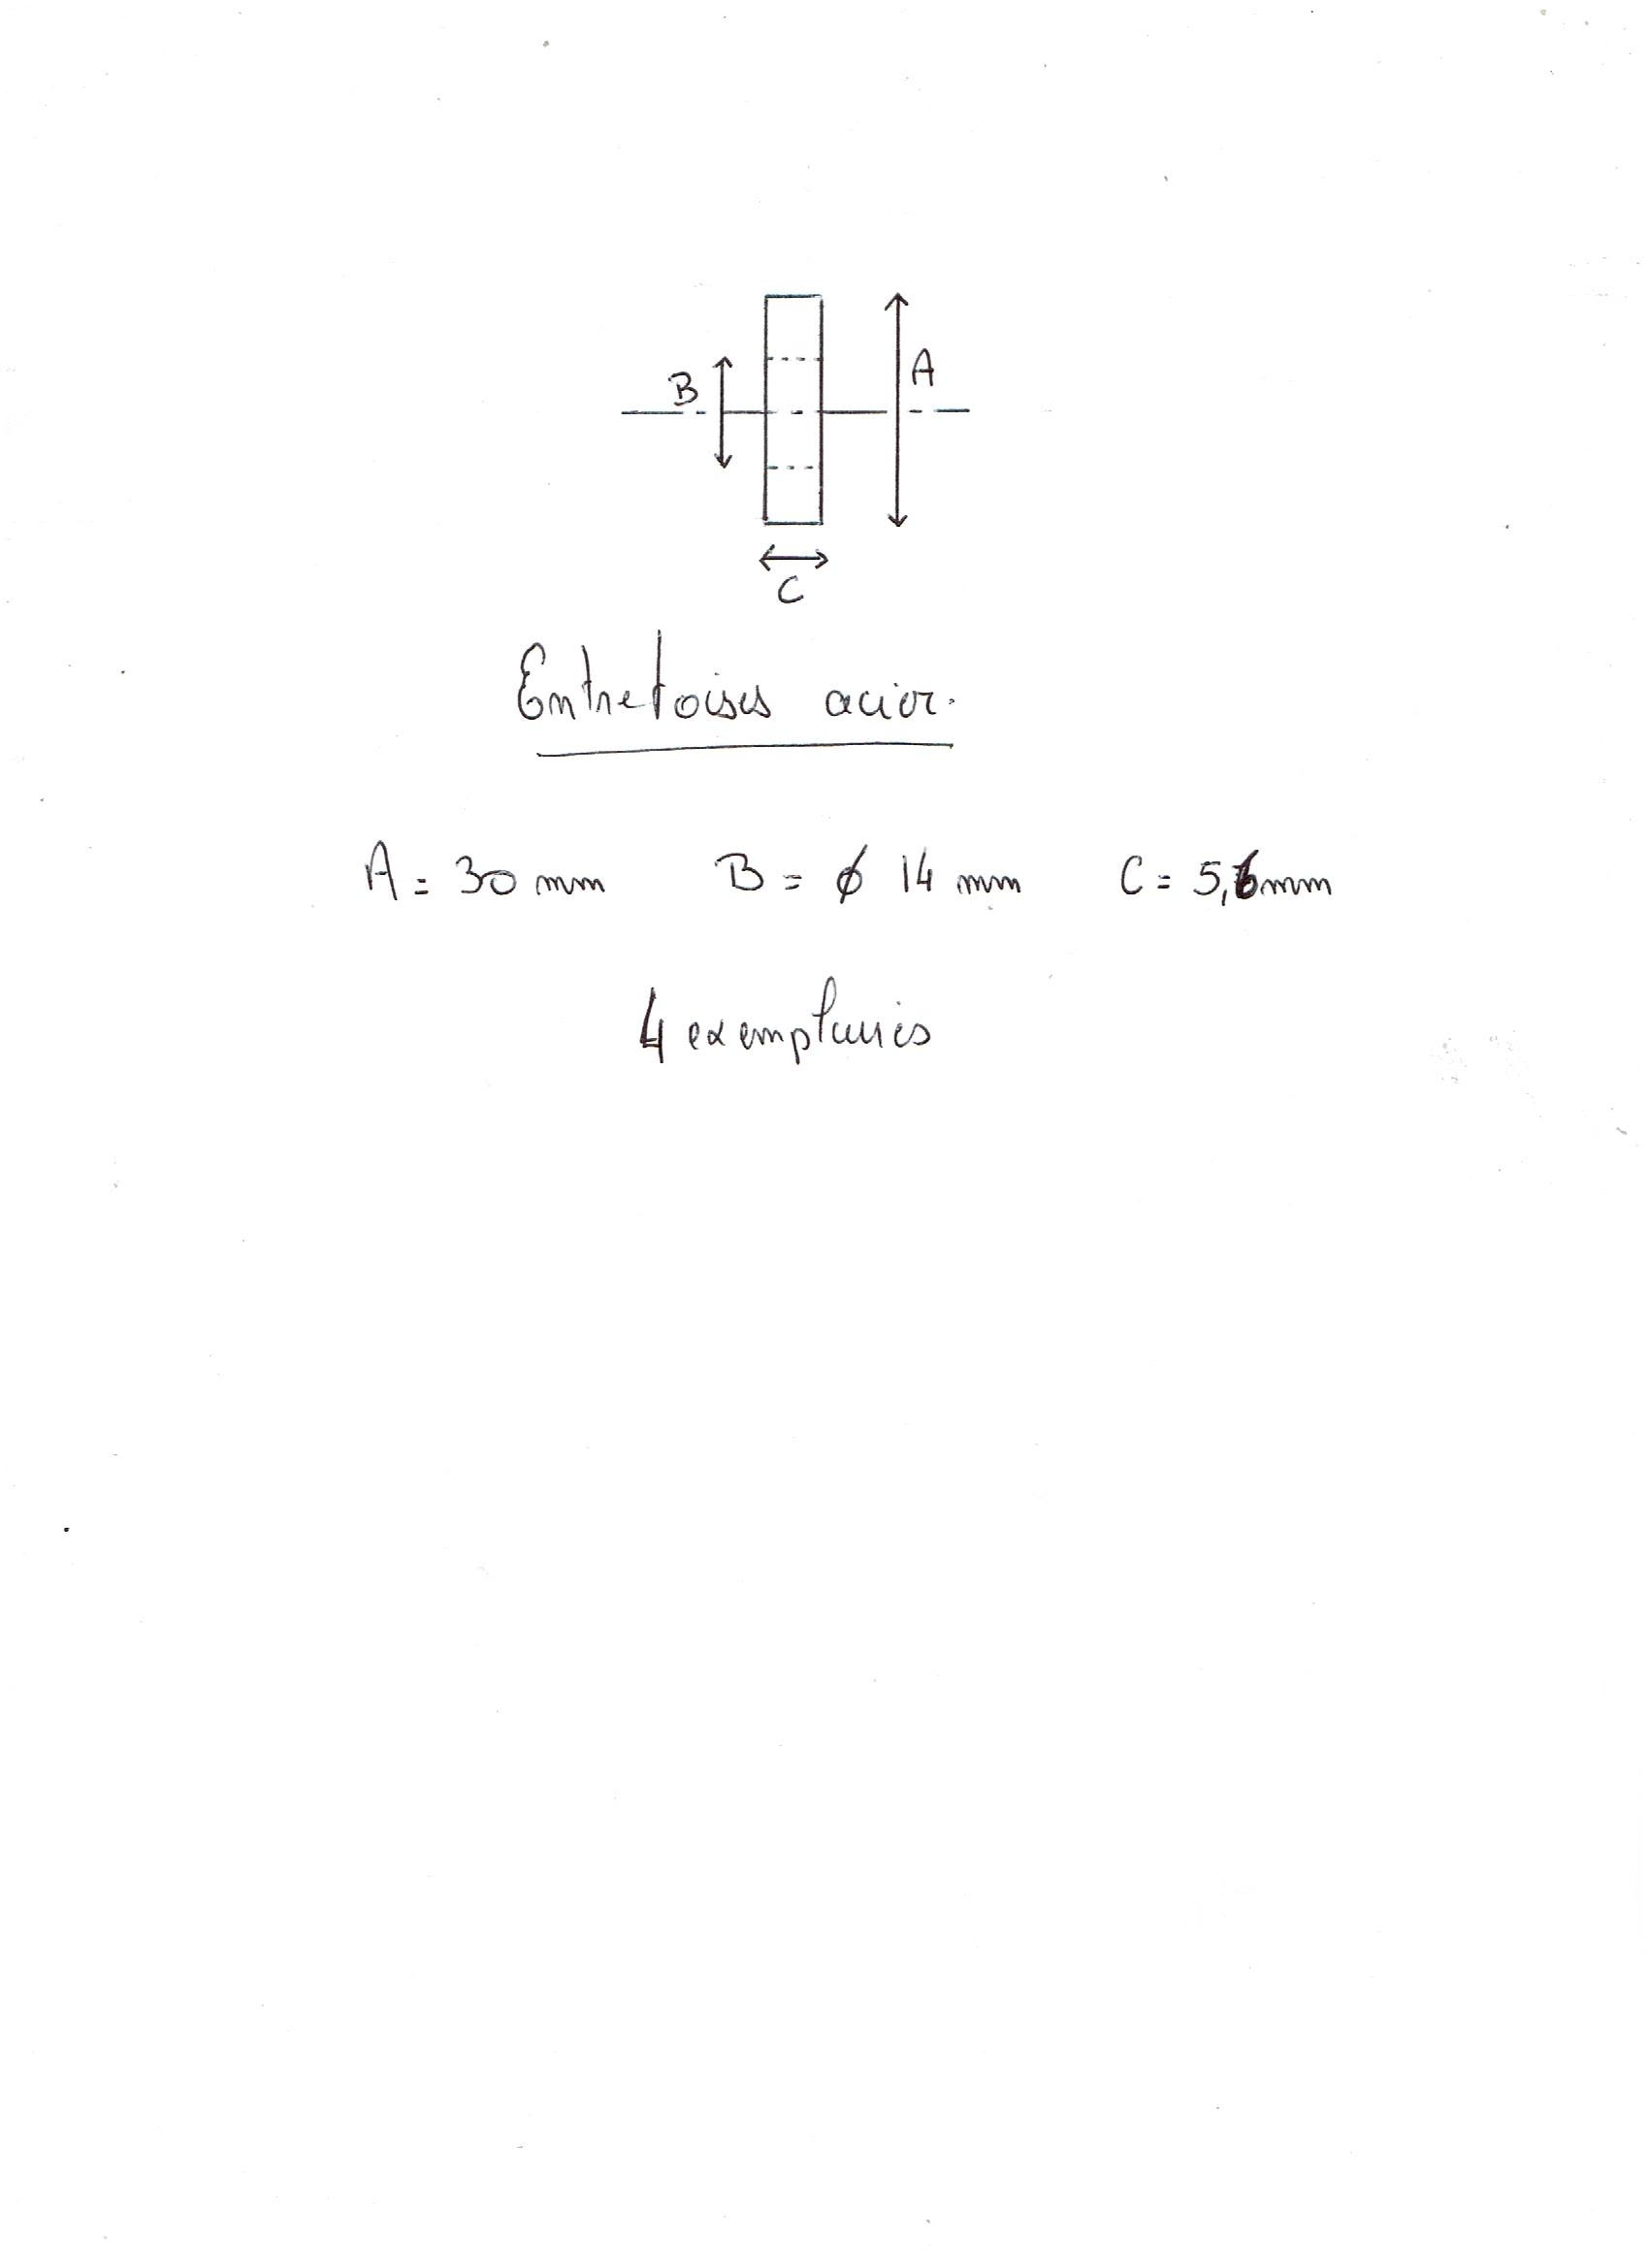 B
A
C
Entretoises acier.
A = 30 mm B = ϕ 14 mm C = 5,6mm
4 exemplaires